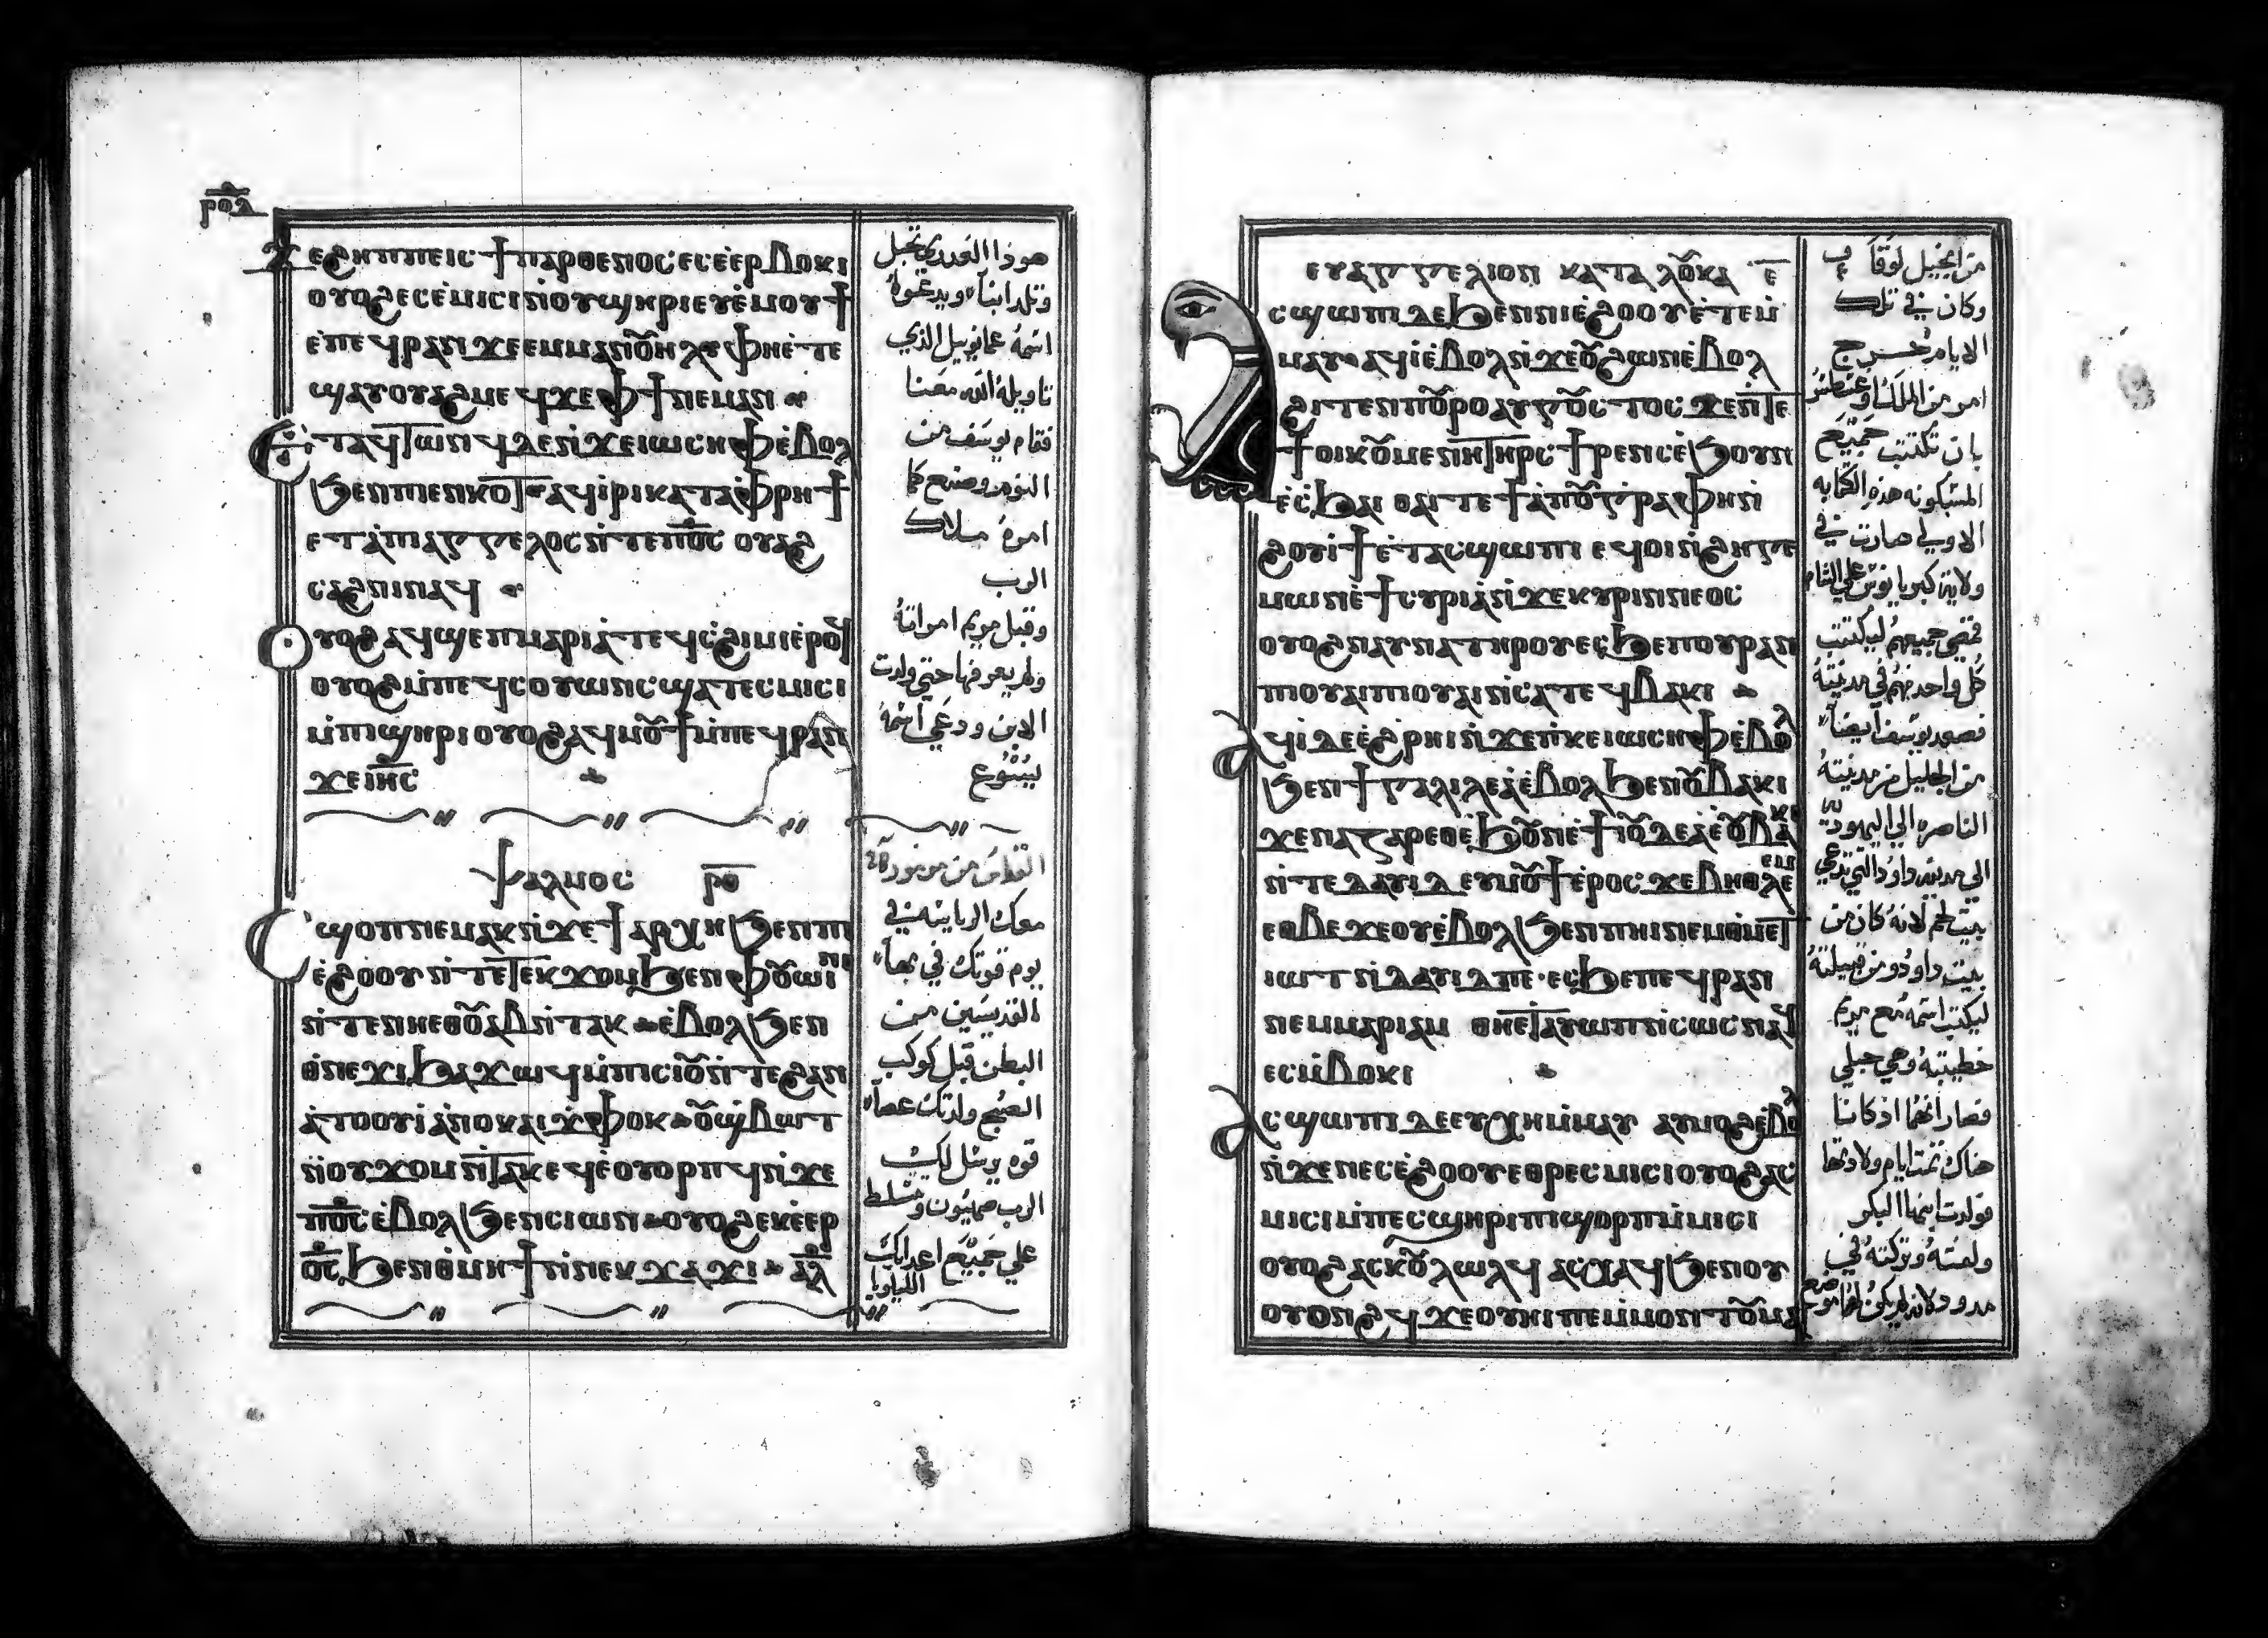 ⲣⲟⲇ
ϫⲉϩⲏⲡⲡⲉⲓⲥ ϯⲡⲁⲣⲑⲉⲛⲟⲥ ⲉⲥⲉ̀ⲉⲣⲃⲟⲕⲓ
ⲟⲩⲟϩ ⲉⲥⲉ̀ⲙⲓⲥⲓ ⲛ̇ⲟⲩϣⲏⲣⲓ ⲉⲩⲉ̀ⲙⲟⲩϯ
ⲉ̀ⲡⲉϥⲣⲁⲛ ϫⲉ ⲉⲙⲙⲁⲛⲟⲩⲏⲗ ⲫⲏⲉ̀ⲧⲉ
ϣⲁⲩⲟⲩⲁϩⲙⲉϥ ϫⲉ ⲫϯ ⲛⲉⲙⲁⲛ
ⲉⲧⲁϥⲧⲱⲛϥ ⲇⲉ ⲛ̇ϫⲉ ⲓⲱⲥⲏⲫ ⲉ̀ⲃⲟⲗ
ϧⲉⲛ ⲡⲉⲛⲕⲟⲧ ⲁϥⲓ̀ⲣⲓ ⲕⲁⲧⲁ ⲫ̀ⲣⲏϯ
ⲉⲧⲁ̀ ⲡⲓⲁⲅⲅⲉⲗⲟⲥ ⲛ̇ⲧⲉ ⲡⲟ̅ⲥ̅ ⲟⲩⲁϩ
ⲥⲁϩⲛⲓ ⲛⲁϥ
ⲟⲩⲟϩ ⲁϥϣⲉⲡ ⲙⲁⲣⲓⲁ̀ ⲧⲉϥⲥ̀ϩⲓⲙⲓ ⲉ̀ⲣⲟϥ
ⲟⲩⲟϩ ⲙ̇ⲡⲉϥⲥⲟⲩⲱⲛⲥ ϣⲁⲧⲉⲥⲙⲓⲥⲓ
ⲙ̇ⲡⲓϣⲏⲣⲓ ⲟⲩⲟϩ ⲁϥⲙⲟⲩϯ ⲙ̇ⲡⲉϥⲣⲁⲛ
ϫⲉ ⲓⲏ̅ⲥ̅
ⲯⲁⲗⲙⲟⲥ ⲣ̅ⲑ̅
ⲥ̀ϣⲟⲡ ⲛⲉⲙⲁⲕ ⲛ̇ϫⲉ ϯⲁⲣⲭⲏ ϧⲉⲛ ⲡⲓ
ⲉ̀ϩⲟⲟⲩ ⲛ̇ⲧⲉ ⲧⲉⲕϫⲟⲙ ϧⲉⲛ ⲫⲟⲩⲱⲓⲛⲓ
ⲛ̇ⲧⲉ ⲛⲏⲉⲑⲟⲩⲁⲃ ⲛ̇ⲧⲁⲕ ⲉ̀ⲃⲟⲗ ϧⲉⲛ
ⲑ̇ⲛⲉϫⲓ ϧⲁϫⲱϥ ⲙ̇ⲡⲓⲥⲓⲟⲩ ⲛ̇ⲧⲉ ϩⲁⲛ
ⲁ̀ⲧⲟⲟⲩⲓ̀ ⲁ̀ⲛⲟⲕ ⲁⲓϫ̇ⲫⲟⲕ ⲟⲩϣ̀ⲃⲱⲧ
ⲛ̇ⲟⲩϫⲟⲙ ⲛ̇ⲧⲁⲕ ⲉϥⲉ̀ⲟⲩⲟⲣⲡϥ ⲛ̇ϫⲉ
ⲡⲟ̅ⲥ̅ ⲉ̀ⲃⲟⲗ ϧⲉⲛ ⲥⲓⲱⲛ ⲟⲩⲟϩ ⲉⲕⲉ̀ⲉⲣ
ⲟ̅ⲥ̅ ϧⲉⲛ ⲑ̇ⲙⲏϯ ⲛ̇ⲛⲉⲕϫⲁϫⲓ ⲁ̅ⲗ̅
هوذا العذري تحبل
وتلد ابنا ويدعوا
اسمه عمانوييل الذي
تاويله الله معنا
فقام يوسف من
النوم وصنع كما
امره ملاك
الرب
وقبل مريم امراته
ولم يعرفها حتي ولدت
الابن ودعي اسمه
يسوع
القداس من مزمور
معك الرياسه في
يوم قوتك في بها
القديسين من
البطن قبل كوكب
الصبح ولدتك عصا
قوه يرسل لك
الرب صهيون وتتسلط
علي جميع اعدايك
الليلويا
ⲉⲩⲁⲅⲅⲉⲗⲓⲟⲛ ⲕⲁⲧⲁ ⲗⲟⲩⲕⲁ ⲉ̅
ⲁⲥϣⲱⲡⲓ ⲇⲉ ϧⲉⲛ ⲛⲓⲉ̀ϩⲟⲟⲩ ⲉ̀ⲧⲉⲙ̇
ⲙⲁⲩ ⲁϥⲓ̀ ⲉ̀ⲃⲟⲗ ⲛ̇ϫⲉ ⲟⲩϩⲱⲛ ⲉ̀ⲃⲟⲗ
ϩⲓⲧⲉⲛ ⲡⲟⲩⲣⲟ ⲁⲩⲅⲟⲩⲥⲧⲟⲥ ϫⲉ ⲛ̇ⲧⲉ
ϯⲟⲓⲕⲟⲩⲙⲉⲛⲏ ⲧⲏⲣⲥ ϯⲣⲉⲛ ⲥⲉ̀ϧⲟⲩⲛ
ⲉ̀ⲥ̀ϧⲁⲓ ⲑⲁⲓ ⲧⲉ ϯⲁ̀ⲡⲟⲅⲣⲁⲫⲏ ⲛ̇
ϩⲟⲩⲓ̀ϯ ⲉ̀ⲧⲁⲥϣⲱⲡⲓ ⲉϥⲟⲓ ⲛ̇ϩⲏⲅⲉ
ⲙⲱⲛ ⲉ̀ϯⲥⲩⲣⲓⲁ̀ ⲛ̇ϫⲉ ⲕⲩⲣⲓⲛⲛⲉⲟⲥ
ⲟⲩⲟϩ ⲛⲁⲩⲛⲁ ⲧⲏⲣⲟⲩ ⲉⲥ̀ϧⲉ ⲡⲟⲩⲣⲁⲛ
ⲡⲓⲟⲩⲁⲓ ⲡⲓⲟⲩⲁⲓ ⲛ̇ⲥⲁ ⲧⲉϥⲃⲁⲕⲓ
ⲁϥⲓ̀ ⲇⲉ ⲉ̀ϩⲣⲏⲓ ⲛ̇ϫⲉ ⲡ̇ⲕⲉ ⲓⲱⲥⲏⲫ ⲉ̀ⲃⲟⲗ
ϧⲉⲛ ϯⲅⲁⲗⲓⲗⲉⲁ̀ ⲉ̀ⲃⲟⲗ ϧⲉⲛ ⲟⲩⲃⲁⲕⲓ
ϫⲉ ⲛⲁⲍⲁⲣⲉⲑ ⲉ̀ϧⲟⲩⲛ ⲉ̀ϯⲓⲟⲩⲇⲉⲁ̀ ⲉ̀ⲟⲩⲃⲁⲕⲓ
ⲛ̇ⲧⲉ ⲇⲁⲩⲓⲇ ⲉⲩⲙⲟⲩϯ ⲉ̀ⲣⲟⲥ ϫⲉ ⲃⲏⲑⲗⲉⲉⲙ
ⲉⲑⲃⲉ ϫⲉ ⲟⲩⲉ̀ⲃⲟⲗ ϧⲉⲛ ⲡⲏⲓ ⲛⲉⲙ ⲑ̇ⲙⲉⲧ
ⲓⲱⲧ ⲛ̇ⲇⲁⲩⲓⲇ ⲡⲉ ⲉⲥ̀ϧⲉ ⲡⲉϥⲣⲁⲛ
ⲛⲉⲙ ⲙⲁⲣⲓⲁⲙ ⲑⲏⲉⲧⲁⲩⲱⲡ ⲛ̇ⲥⲱⲥ ⲛⲁϥ
ⲉⲥⲙ̇ⲃⲟⲕⲓ
ⲁⲥϣⲱⲡⲓ ⲇⲉ ⲉⲩⲭⲏ ⲙ̇ⲙⲁⲩ ⲁⲩⲙⲟϩ ⲉ̀ⲃⲟⲗ
ⲛ̇ϫⲉ ⲛⲉⲥⲉ̀ϩⲟⲟⲩ ⲉⲑⲣⲉⲥⲙⲓⲥⲓ ⲟⲩⲟϩ ⲁⲥ
ⲙⲓⲥⲓ ⲙ̇ⲡⲉⲥϣⲏⲣⲓ ⲡⲓϣⲟⲣⲡ ⲙ̇ⲙⲓⲥⲓ
ⲟⲩⲟϩ ⲁⲥⲕⲟⲩⲗⲱⲗϥ ⲁⲥⲭⲁϥ ϧⲉⲛ ⲟⲩ
ⲟⲩⲟⲛϩϥ ϫⲉ ⲟⲩⲏⲓ ⲡⲉ ⲙ̇ⲙⲟⲛ ⲧⲟⲩⲙⲁ
من انجيل لوقا
وكان في تلك
الايام خرج
امر من الملك اوغسطس
بان تكتتب جميع
المسكونه هذه الكتابه
الاولي صارت في
ولاية كيريانوس علي الشام
فمضي جميعهم ليكتتب
كل واحد منهم في مدينته
فصعد يوسف ايضا
من الجليل من مدينته
الناصره الي اليهوديه
الي مدينة داوود التي تدعي
بيت لحم لانه كان من
بيت داوود ومن قبيلته
ليكتب اسمه مع مريم
خطيبته وهي حبلي
فصار انهما اذ كانا
هناك تمت ايام ولادتها
فولدت ابنها البكر
ولفته وتركته في
مدود لانه لم يكن لهما موضع